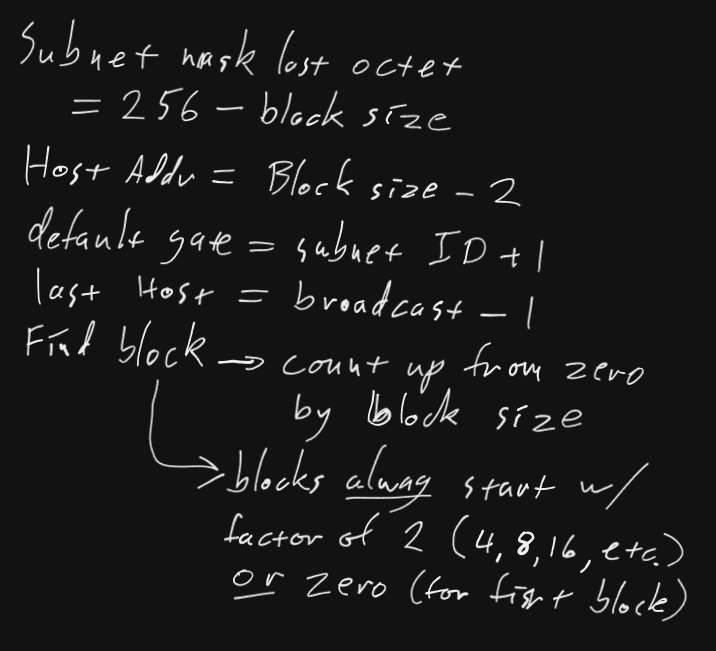 Subnet mask last octet
= 256 - block size
Host Addr = Block size - 2
default gate = subnet ID + 1
last Host = broadcast - 1
Find block → count up from zero
by block size
→ blocks alway start w/
factor of 2 (4, 8, 16, etc.)
or zero (for fisrt block)